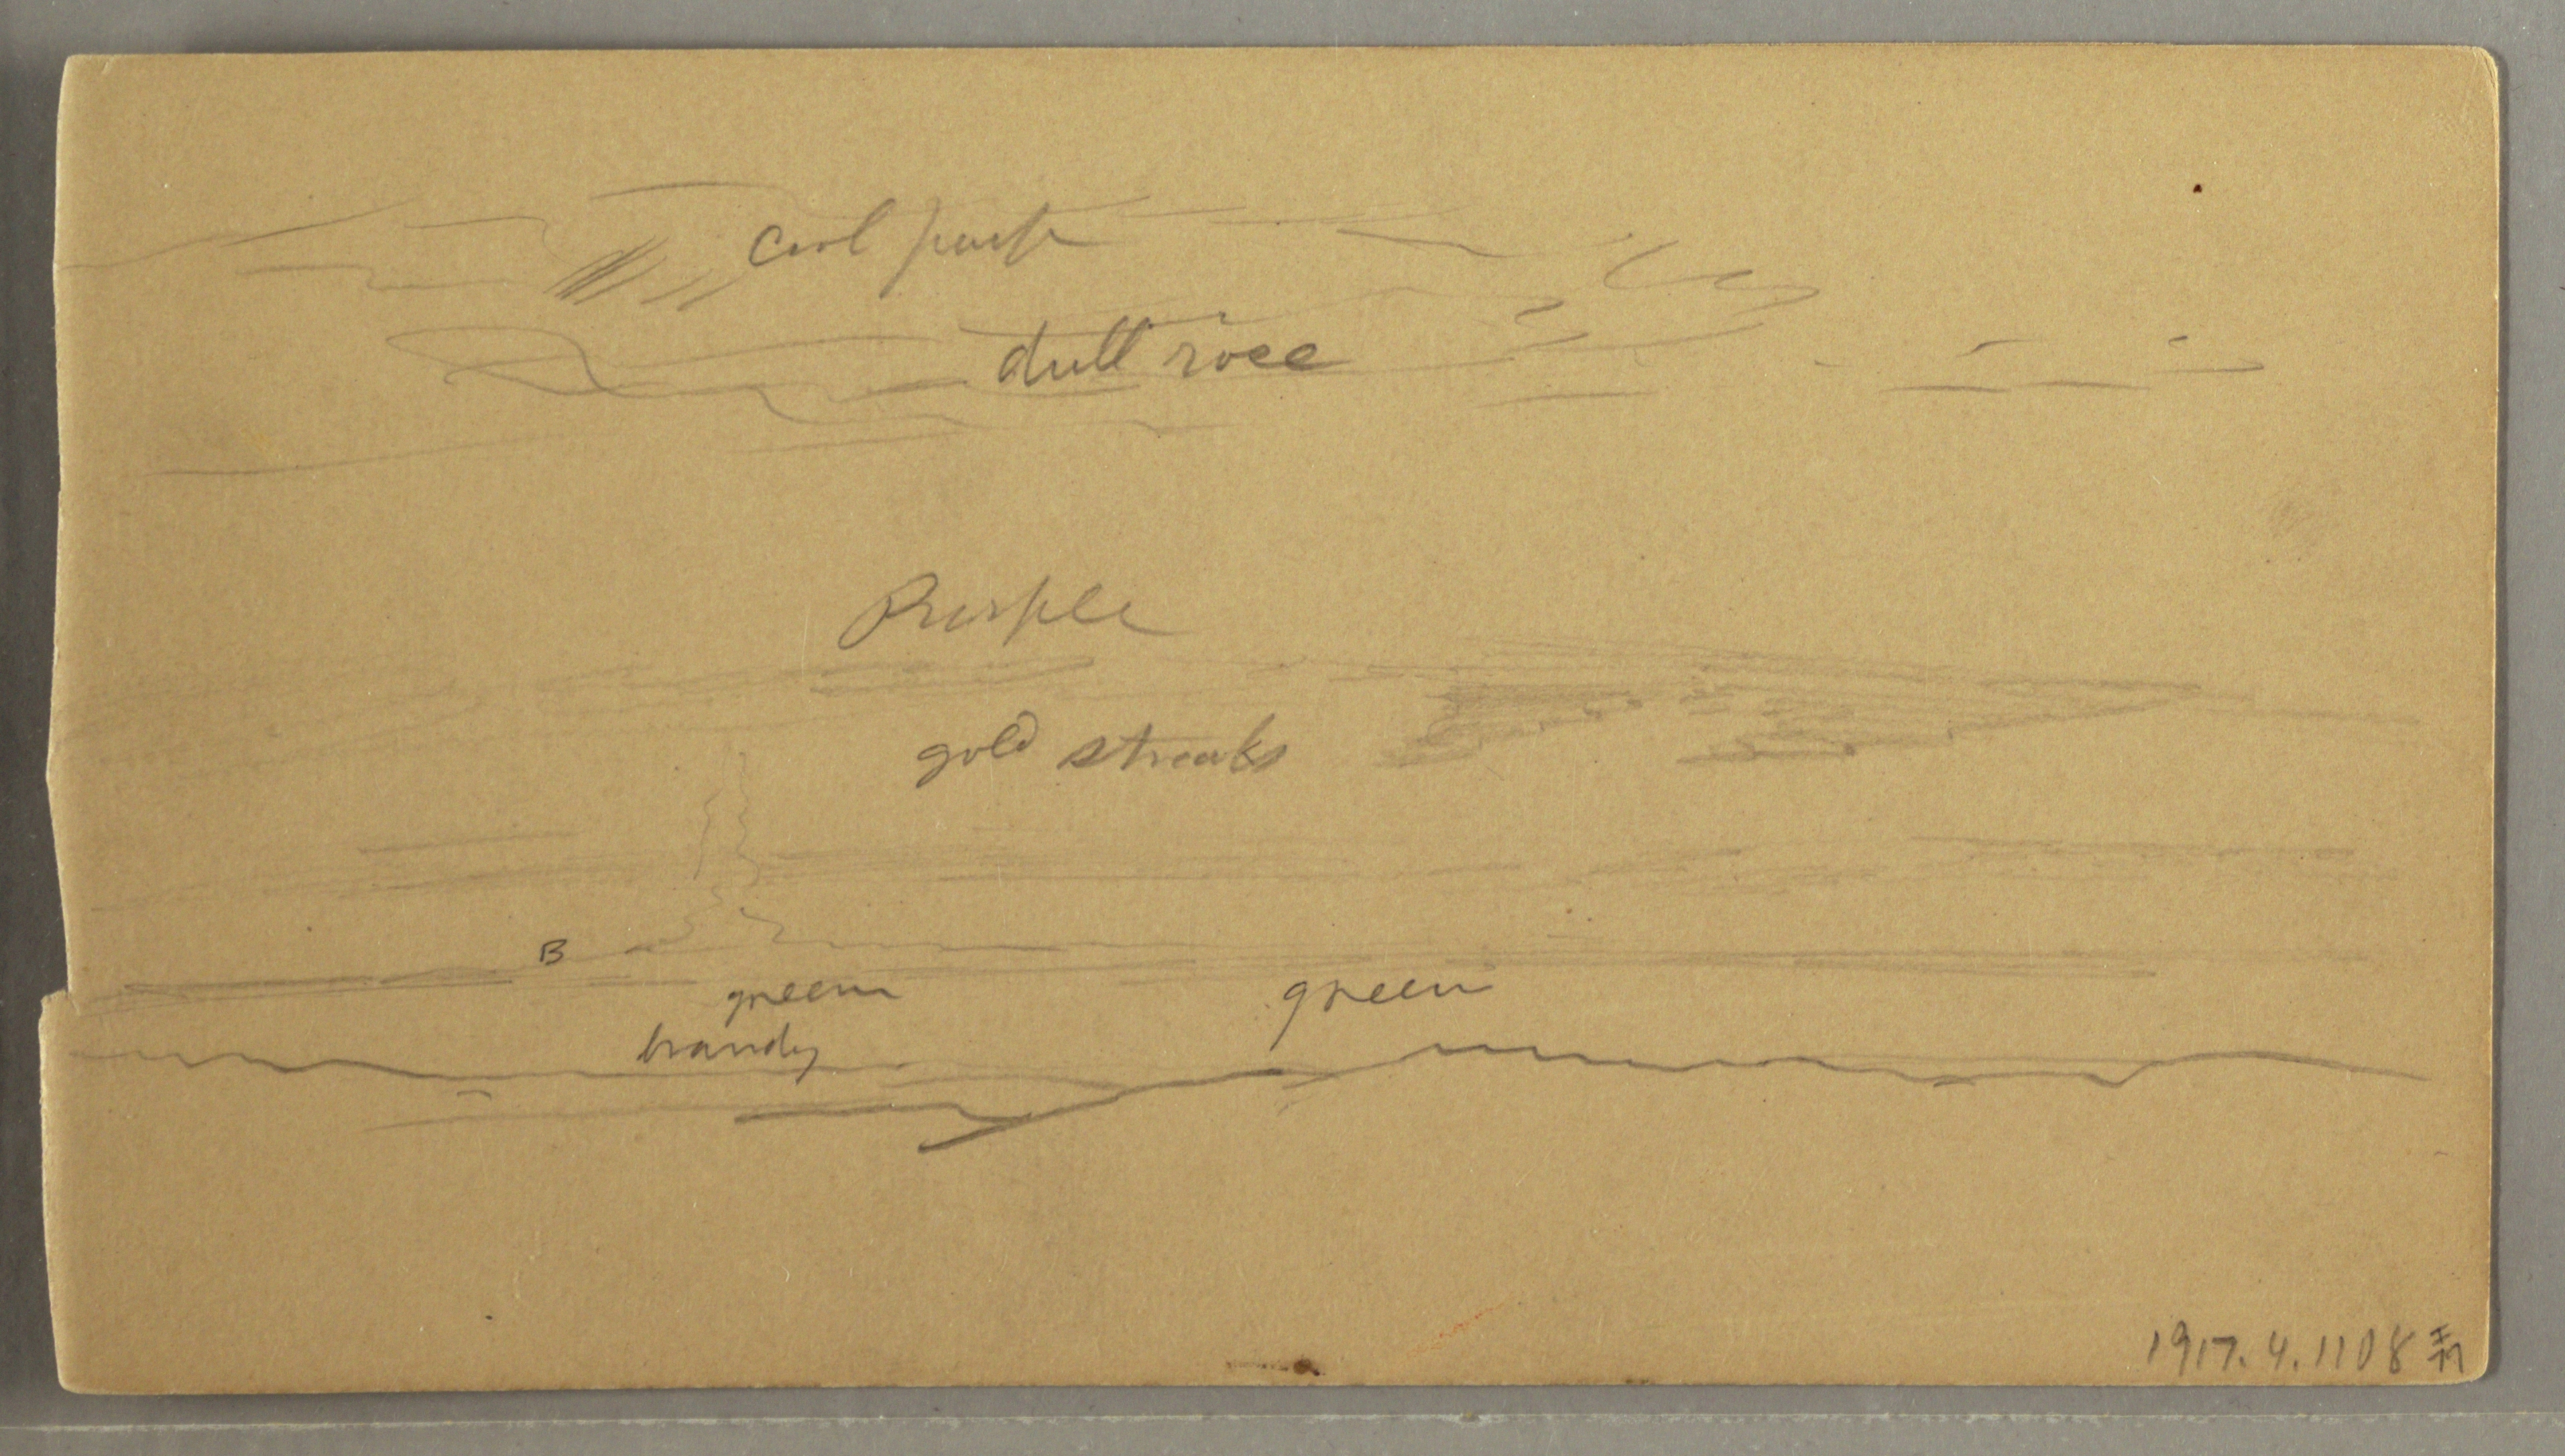 cool pink
dull rose
Purple
gold streaks
B
green green
brandy
1917.4.1108